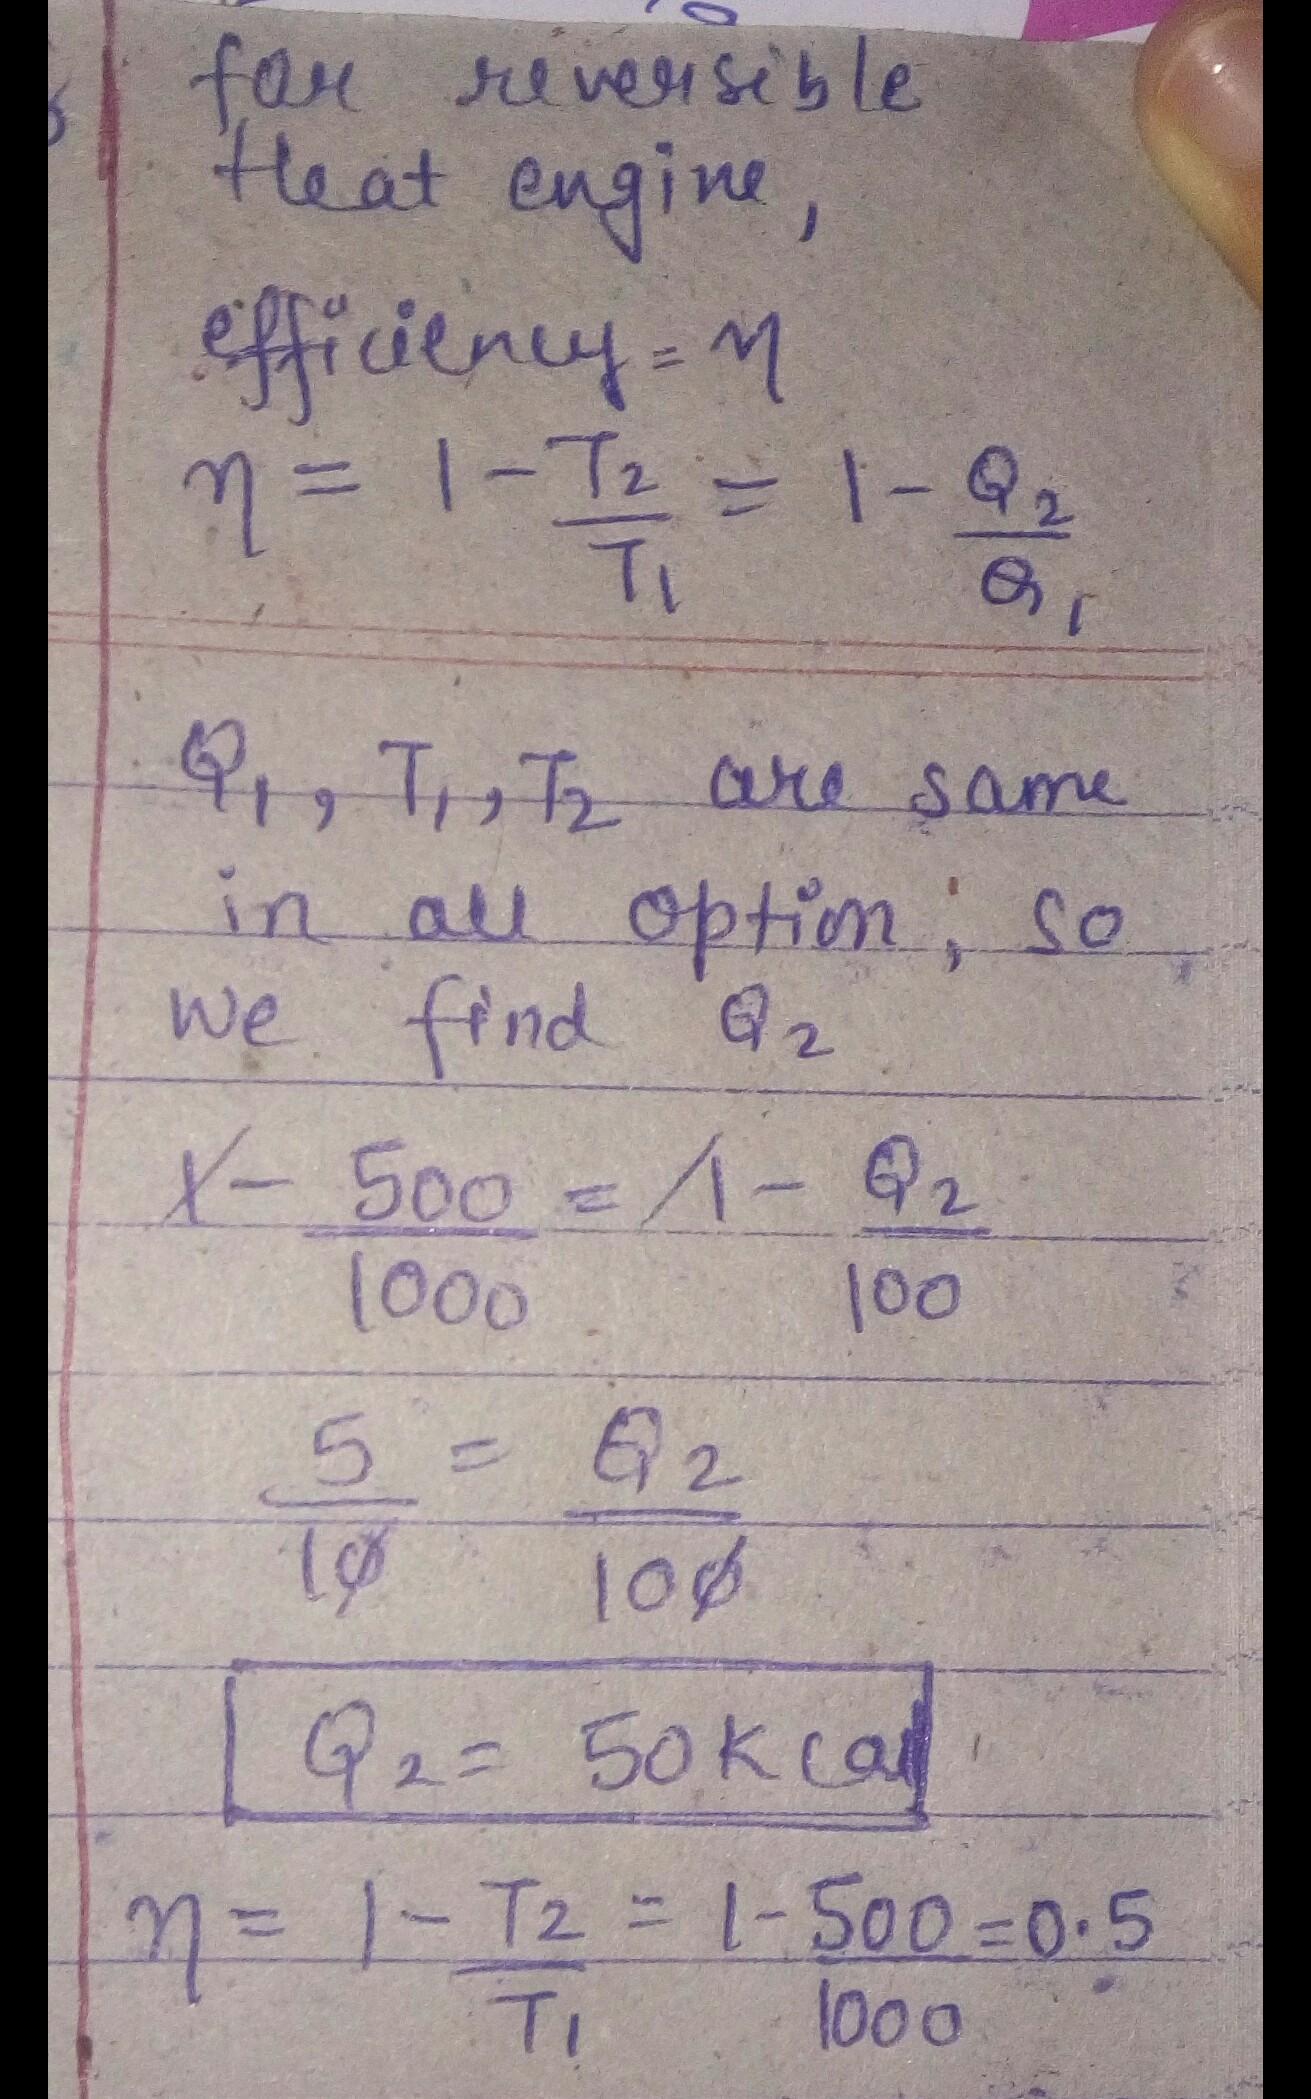 for reversible
Heat engine,
efficiency = η
η = 1 - T₂/T₁ = 1 - Q₂/Q₁
Q₁, T₁, T₂ are same
in all option, so
we find Q₂
1 - 500/1000 = 1 - Q₂/100
5/10 = Q₂/100
Q₂ = 50 Kcal
η = 1 - T₂/T₁ = 1 - 500/1000 = 0.5